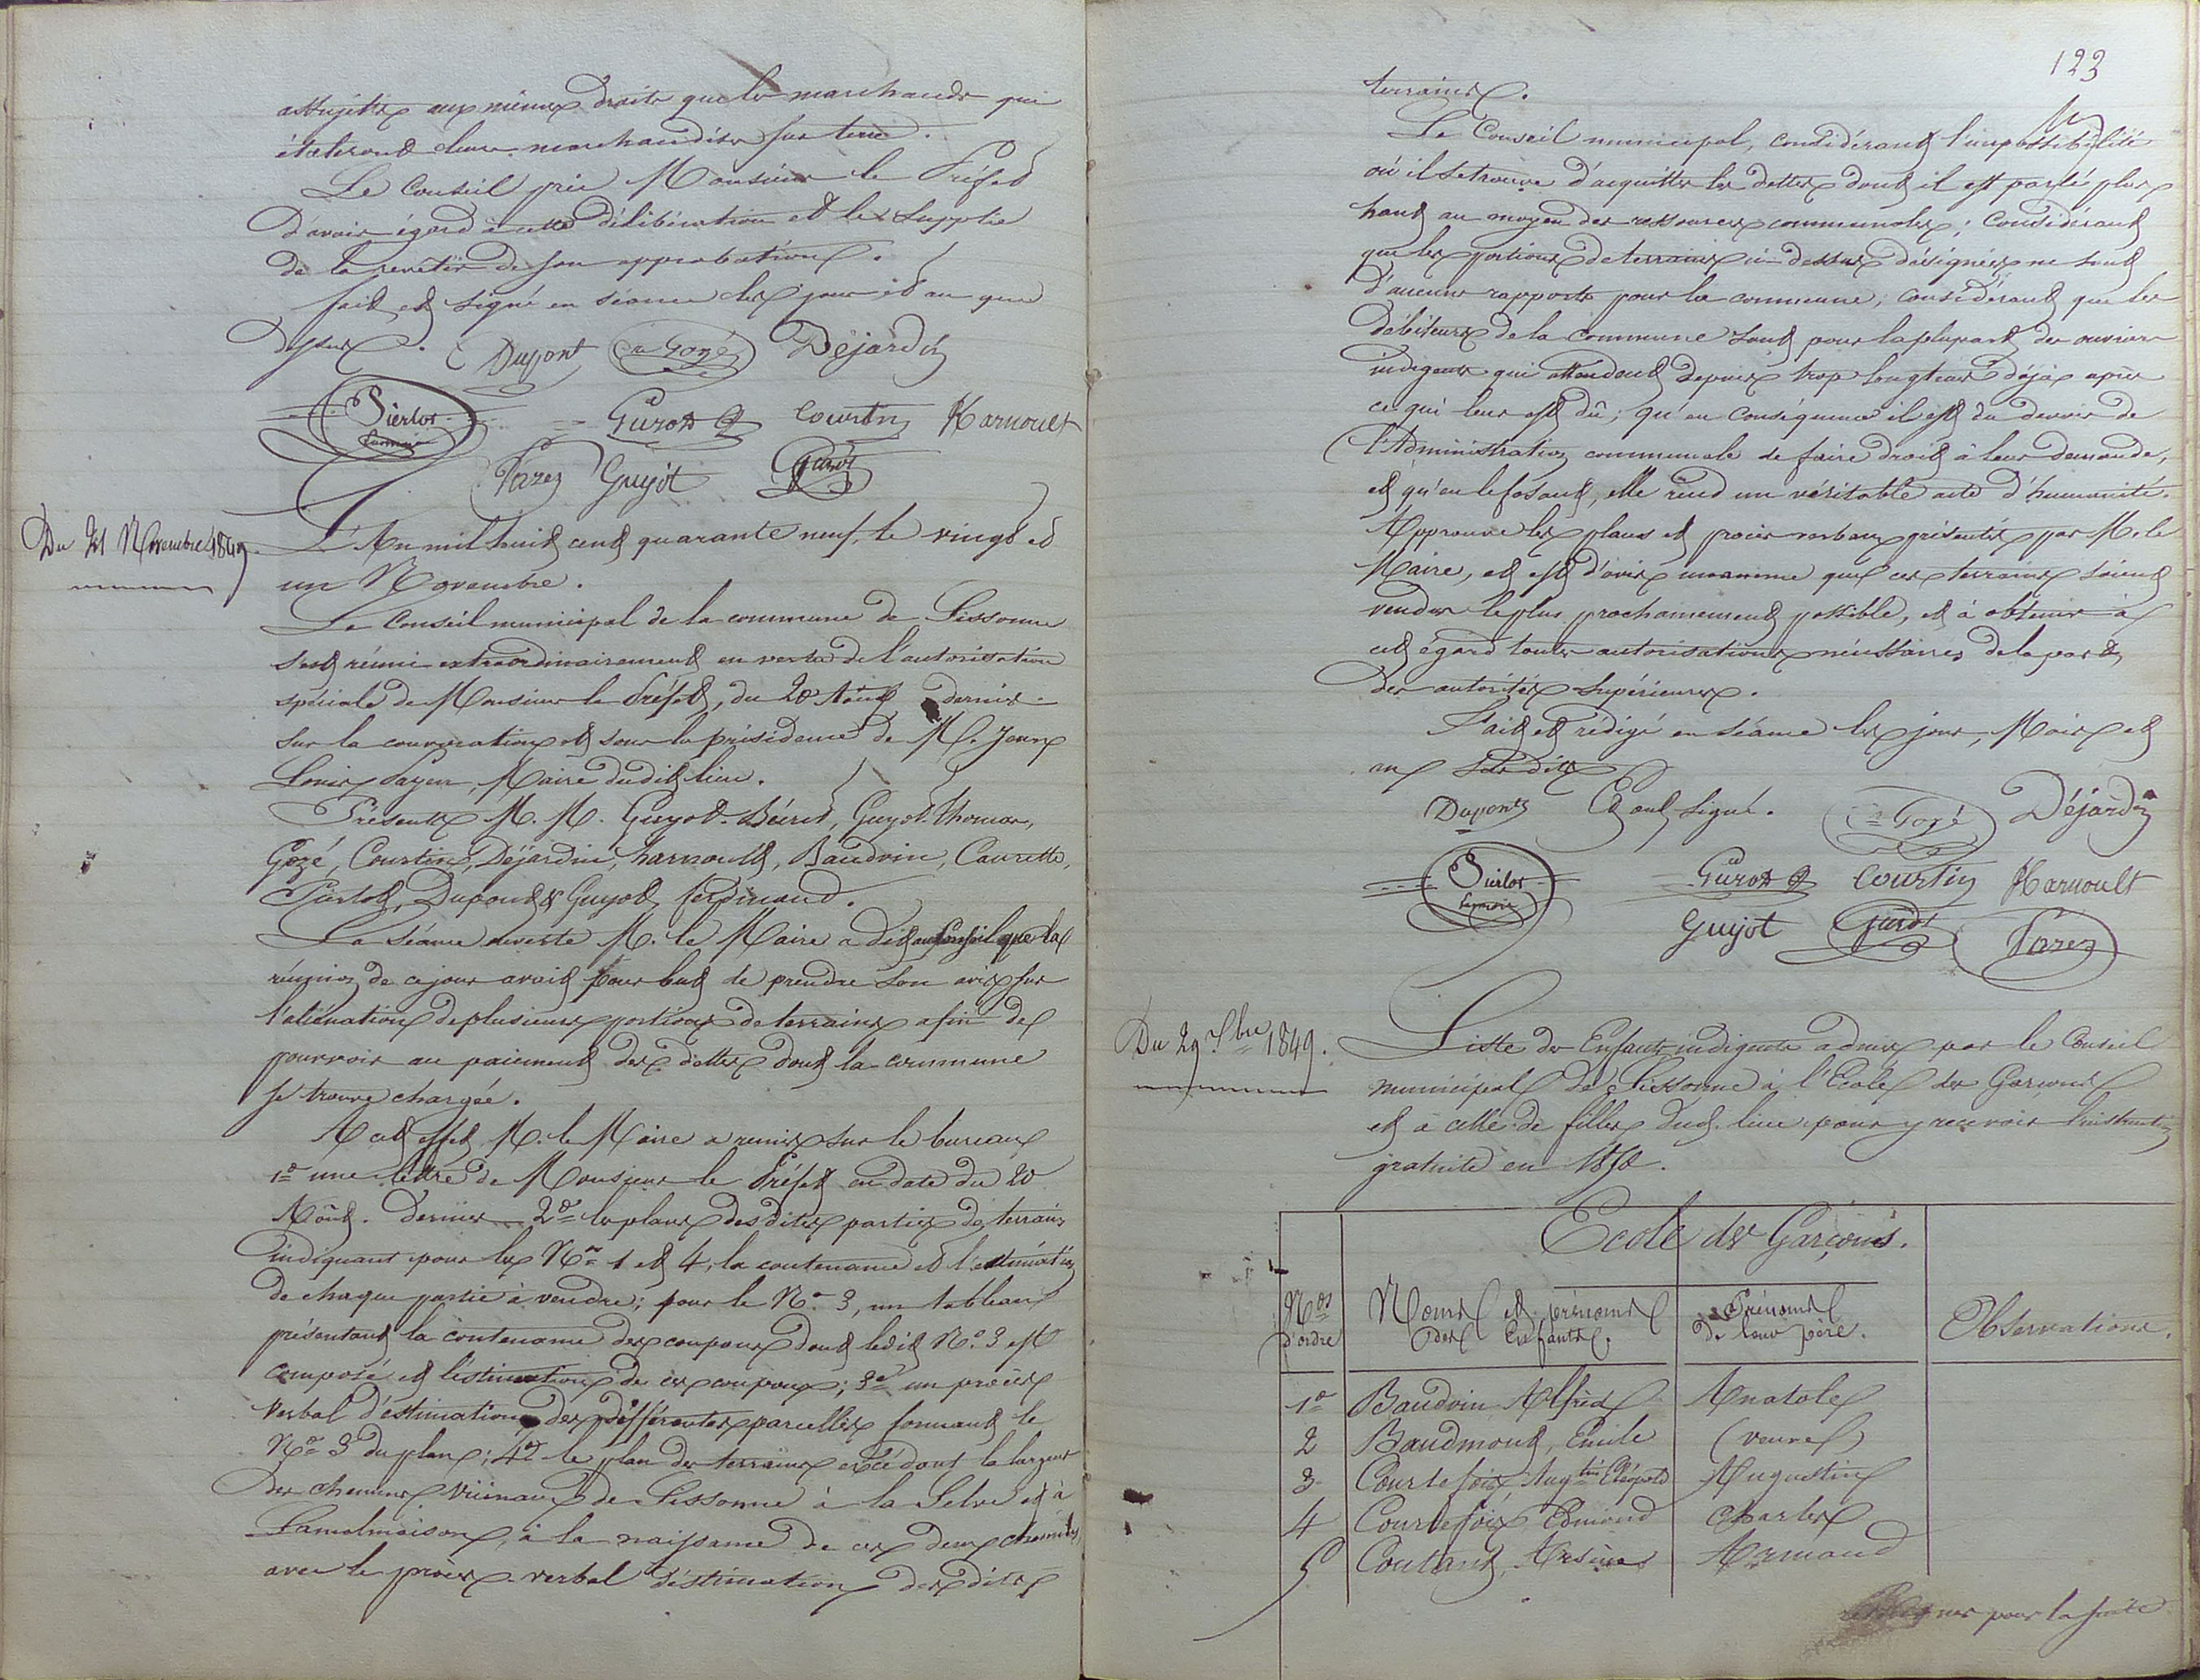 assujettis aux mêmes droits que les marchands qui
étaleront leurs marchandises sur terre.
Le Conseil prie Monsieur le Préfet
d'avoir égard à cette délibération et le supplie
de la revêtir de son approbation.
Fait et signé en séance les jour et an que
dessus. Dupont Gozé Déjardin
Pierlot Guyot Courtin Harnoult
Parez Guyot
Du 21 Novembre 1849.
L'An mil huit cent quarante neuf, le vingt et
un Novembre.
Le Conseil municipal de la commune de Sissonne
s'est réuni extraordinairement en vertu de l'autorisation
spéciale de Monsieur le Préfet, du 20 Août dernier
sur la convocation et sous la présidence de M. Jean
Louis Payen, Maire dudit lieu.
Présents M. M. Guyot-Béird, Guyot-Thomas,
Gozé, Courtin, Déjardin, harnoult, Baudvin, Caurette,
Pierlot, Dupont & Guyot ferdinand.
La séance ouverte M. le Maire a dit au Conseil que la
réunion de ce jour avait pour but de prendre son avis sur
l'aliénation de plusieurs portions de terrains afin de
pourvoir au paiement des dettes dont la commune
se trouve chargée.
A cet effet M. le Maire a remis sur le bureau
1º une lettre de Monsieur le Préfet en date du 20
Août. dernier 2º les plans desdites parties de terrains
indiquant pour les Nos 1 et 4, la contenance et l'estimation
de chaque partie à vendre; pour le Nº 3, un tableau
présentant la contenance des coupons dont ledit Nº 3 est
composé et l'estimation de ces coupons; 3º un procès
verbal d'estimation des différentes parcelles formant le
Nº 3 du plan; 4º le plan des terrains excédant la largeur
des chemins vicinaux de Sissonne à la Selve et à
Lamalmaison, à la naissance de ces deux chemins,
avec le procès-verbal d'estimation desdits
123
terrains.
Le Conseil municipal, considérant l'impossibilité
où il se trouve d'acquitter les dettes dont il est parlé plus
haut au moyen des ressources communales; Considérant
que les portions de terrains ci-dessus désignées ne sont
d'aucuns rapports pour la commune; considérant que les
débiteurs de la commune sont pour la plupart des ouvriers
indigents qui attendent depuis trop longtems déjà après
ce qui leur est dû; qu'en conséquence il est du devoir de
l'Administration communale de faire droit à leur demande,
et qu'en le fesant, elle rend un véritable acte d'humanité.
Approuve les plans et procès verbaux présentés par M. le
Maire, et est d'avis unanime que ces terrains soient
vendus le plus prochainement possible, et à obtenir à
cet égard toutes autorisations nécessaires de la part
des autorités supérieures.
Fait et rédigé en séance les jour, Mois et
an susdits
Dupont Et ont signé. Gozé Déjardin
Pierlot Guyot Courtin Harnoult
Guyot Parez
Du 29 9bre 1849.
Liste des Enfants indigents admis par le Conseil
municipal de Sissonne à l'Ecole des Garçons
et à celle de filles dud. lieu pour y recevoir l'instruction
gratuite en 1850.
Ecole des Garçons.
Nos d'ordre
Noms et prénoms des Enfants.
Prénoms de leur père.
Observations.
1º Baudvin Alfred Anatole
2 Baudmont, Emile (veuve)
3 Courtefoix Augtin Léopold Augustin
4 Courtefoix Edmond Charles
5 Coutant, Arsène Armand
pour la suite